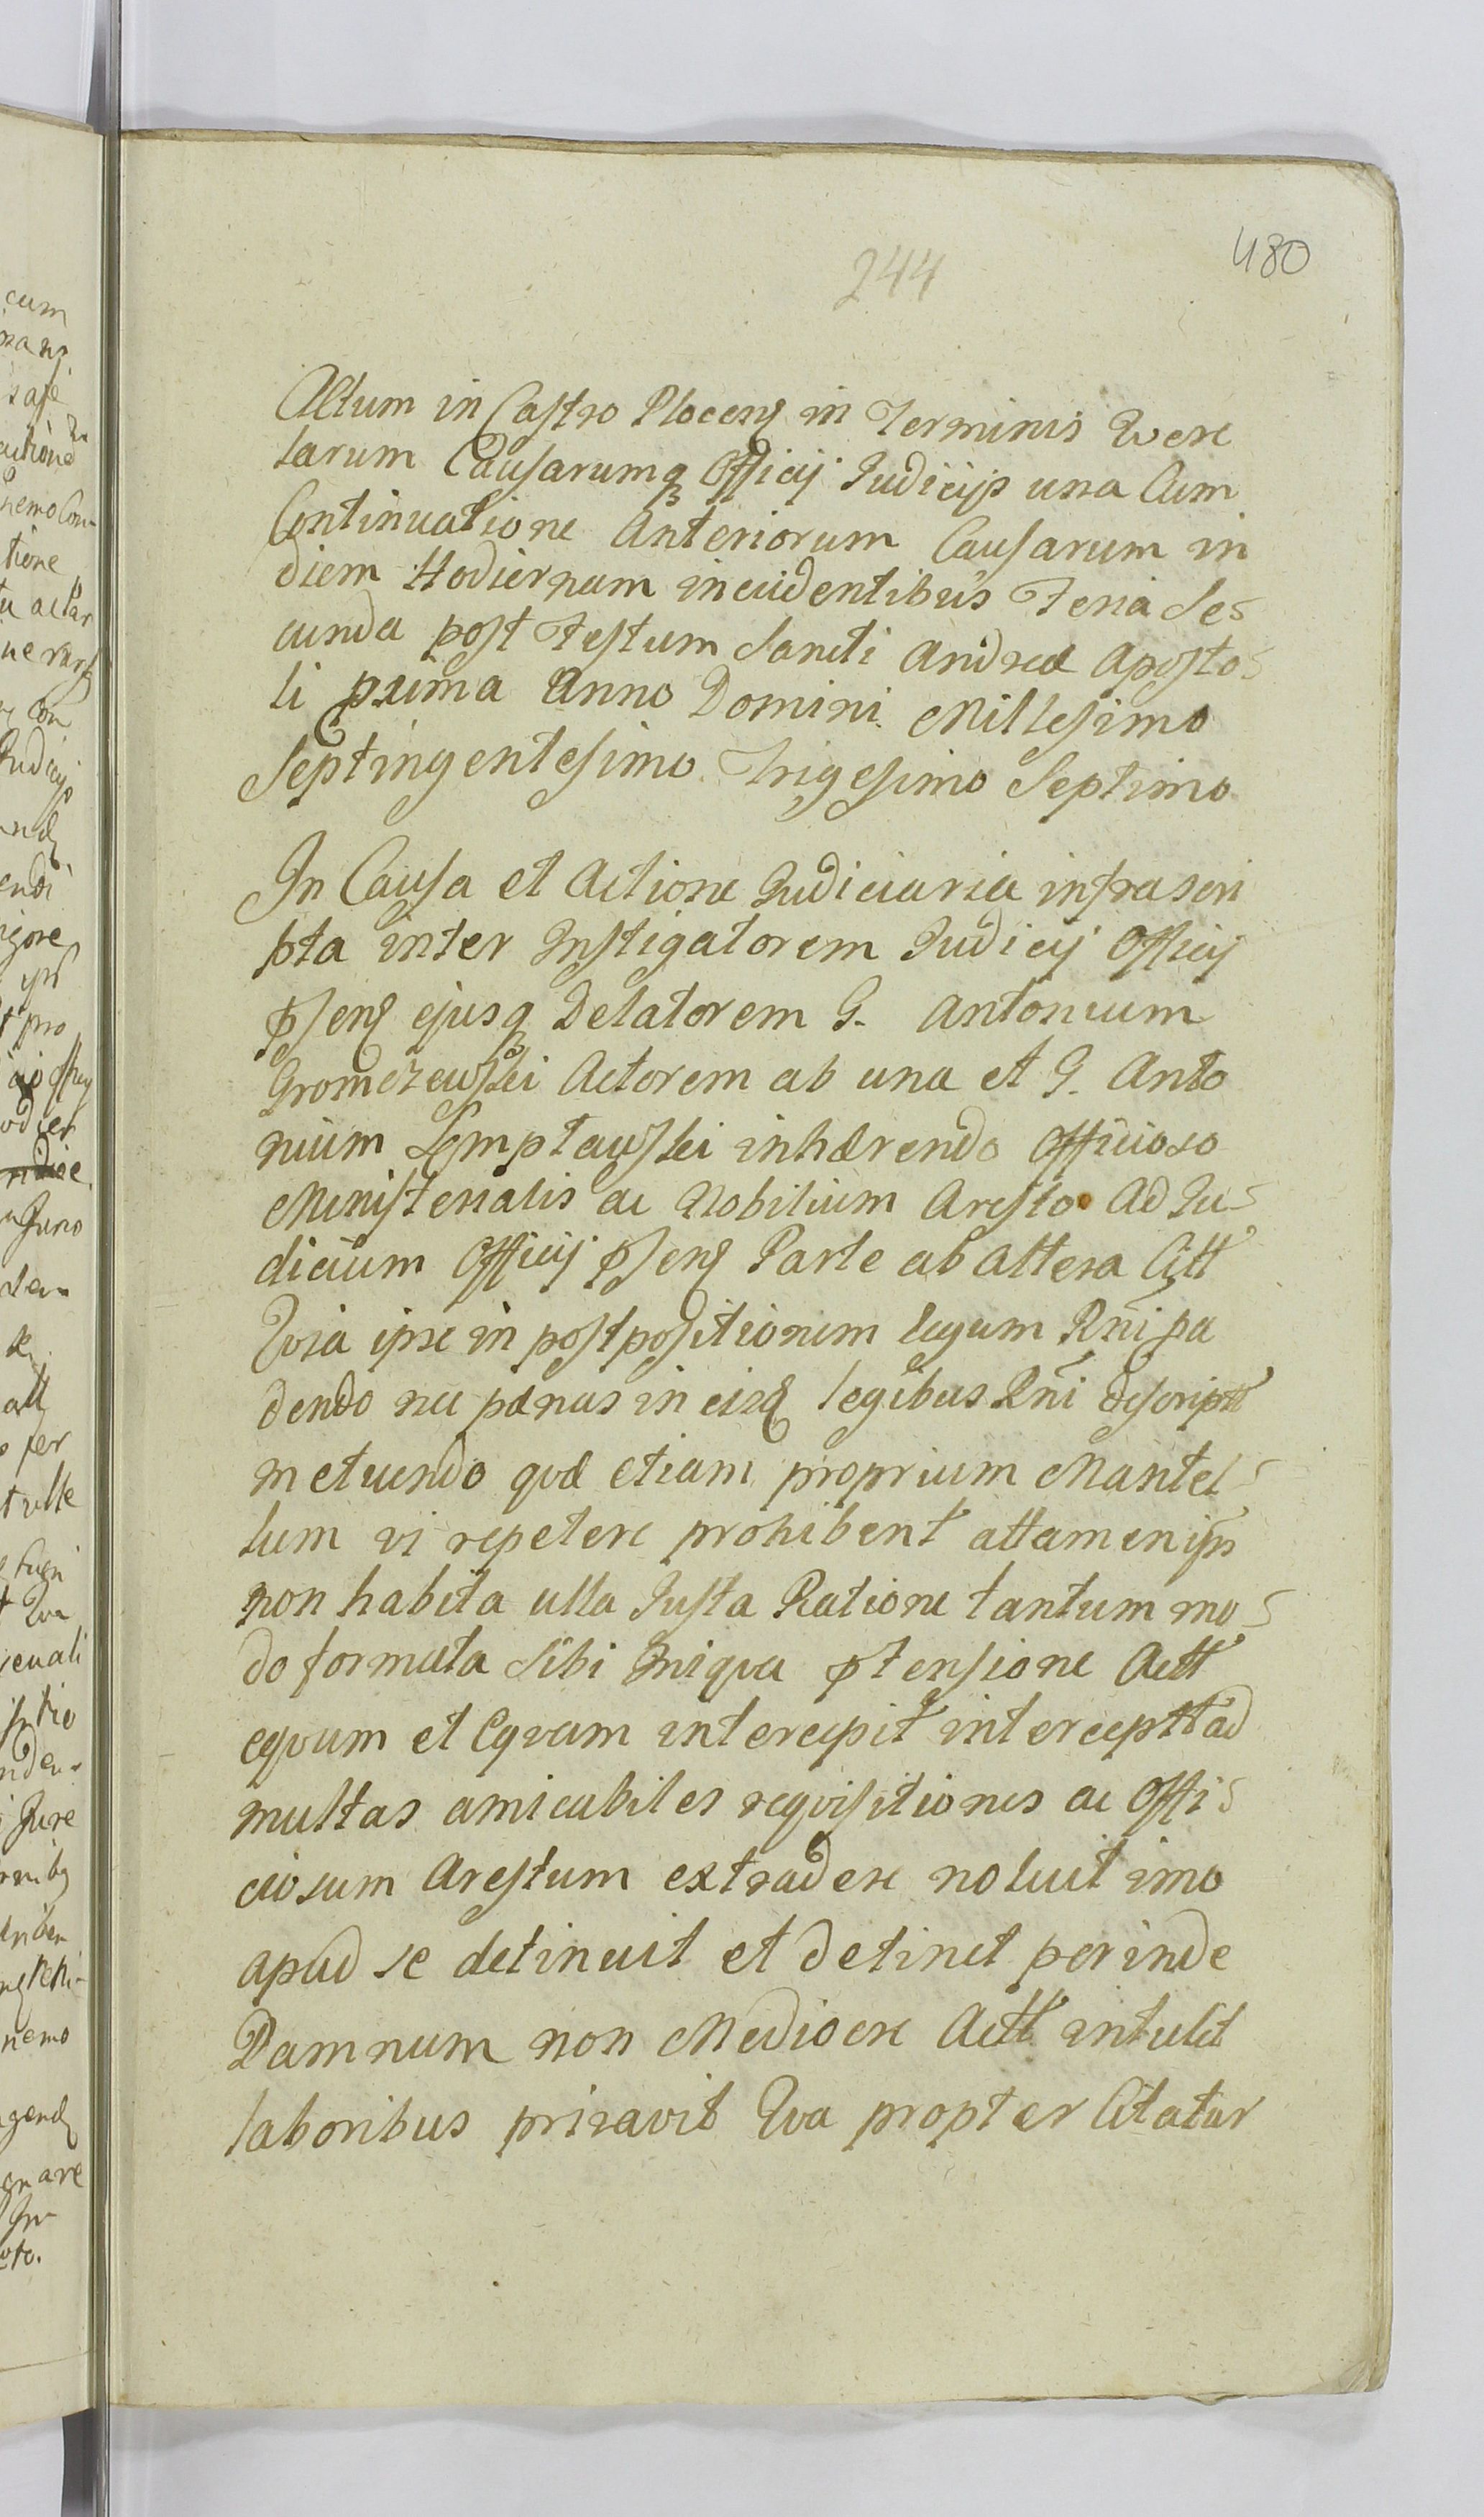 244
480
Actum in Castro Plocenſ in Terminis Quere
larum Causarumq Officij Judicijs una Cum
Continuatione Anteriorum Causarum in
diem Hodiernam incidentibus Feria Se-
cunda post Festum Sancti Andreæ Aposto-
li prima Anno Domini Millesimo
Septingentesimo Trigesimo Septimo
In Causa et Actione Judiciaria infrascri
pta inter Instigatorem Judicij Officij
ꝑsenſ ejusq Delatorem G. Antonium
Gromczewski Actorem ab una et G. Anto
nium Lemptowski inhærendo Officioso
Ministerialis ac Nobilium Aresto Ad Ju-
dicium Officij ꝑsenſ Parte ab altera Citt
Quia ipse in postpositionem legum Rñi
dendo nec pænas in eisd legibus Rñi descriptt
metuendo quæ etiam proprium Mantel-
lum vi repetere prohibent attamen ips
non habita ulla Justa Ratione tantum mo-
do formata Sibi Iniqua ꝑtensione Actt
equum et Equam intercepit interceptt ad
multas amicabiles requisitiones ac Offi-
ciosum Arestum extradere noluit imo
apud se detinuit et detinet perinde
Damnum non Mediocre Actt intulit
laboribus privavit Qua propter Citatur
cum
tione
pro
Juno
Jure
nemo